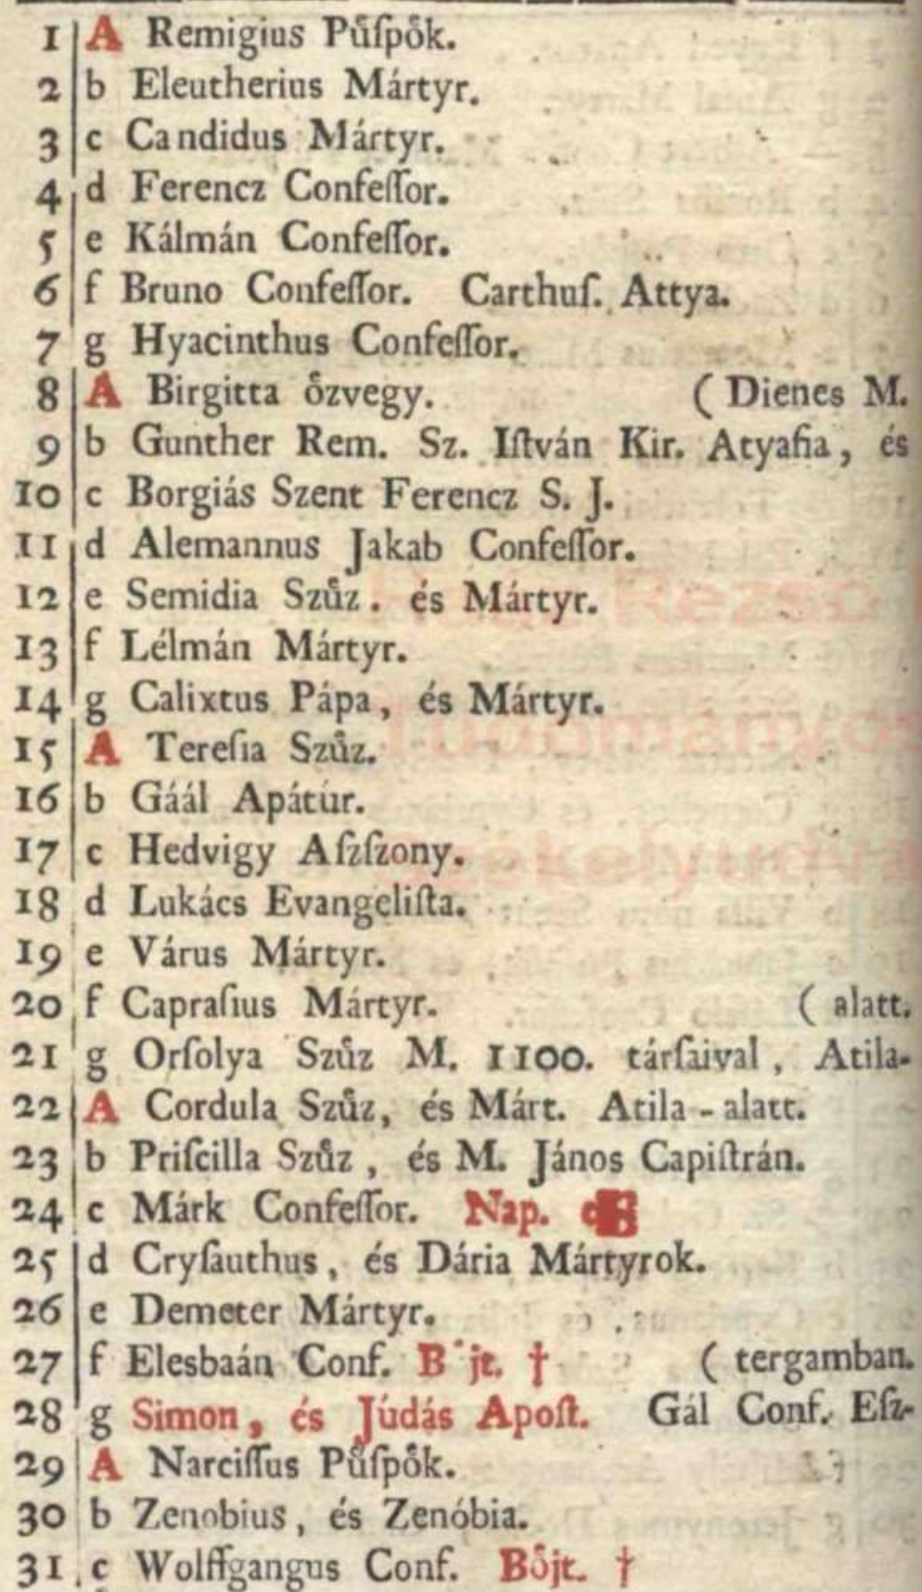 1 A Remigius Půſpȯ̊k.
2 b Eleutherius Mártyr.
3 c Candidus Mártyr.
4 d Ferencz Confeſſor.
5 e Kálmán Confeſſor.
6 f Bruno Confeſſor. Carthuſ. Attya.
7 g Hyacinthus Confeſſor.
8 A Birgitta o̊zvegy. ( Dienes M.
9 b Gunther Rem. Sz. Iſtván Kir. Atyafia, és
10 c Borgiás Szent Ferencz S. J.
11 d Alemannus Jakab Confeſſor.
12 e Semidia Szůz. és Mártyr.
13 f Lélmán Mártyr.
14 g Calixtus Pápa, és Mártyr.
15 A Tereſia Szůz.
16 b Gáál Apátúr.
17 c Hedvigy Aſzſzony.
18 d Lukács Evangeliſta.
19 e Várus Mártyr.
20 f Capraſius Mártyr. ( alatt.
21 g Orſolya Szůz M. 1100. tárſaival, Atila-
22 A Cordula Szůz, és Márt. Atila-alatt.
23 b Priſcilla Szůz, és M. János Capiſtrán.
24 c Márk Confeſſor. Nap.
25 d Cryſauthus, és Dária Mártyrok.
26 e Demeter Mártyr.
27 f Elesbaán Conf. B jt. † ( tergamban.
28 g Simon, és Júdás Apoſt. Gál Conf. Eſz-
29 A Narciſſus Půſpo̊k.
30 b Zenobius, és Zenóbia.
31 c Wolffgangus Conf. Bo̊jt. †